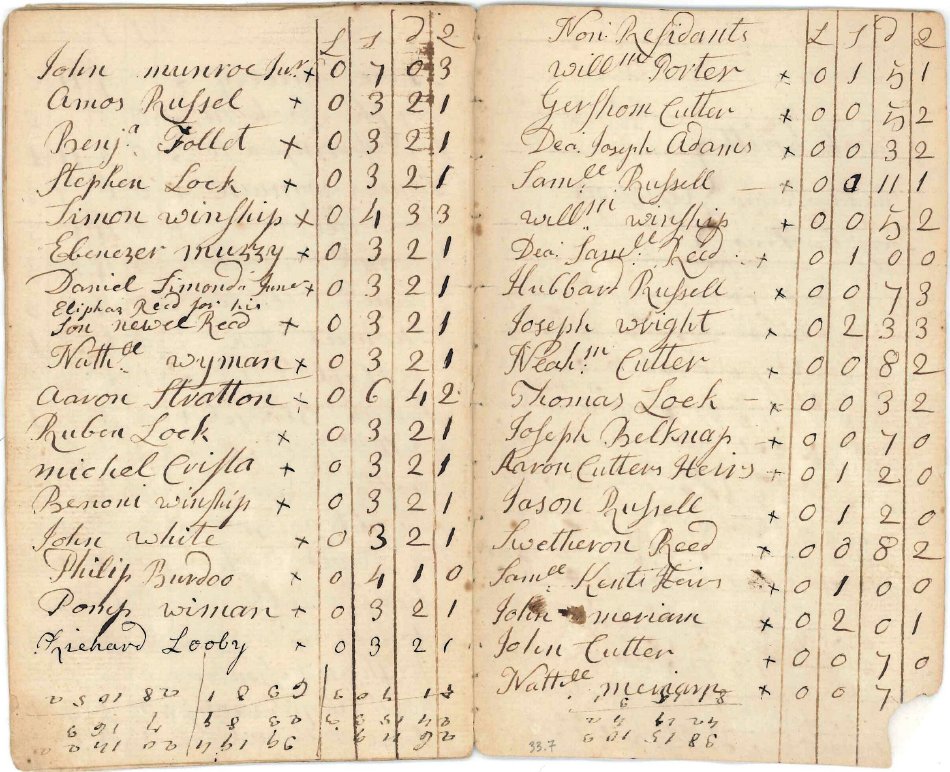 £ s d 2
John munroe Junr x 0 7 0 3
Amos Russel x 0 3 2 1
Benja Follet x 0 3 2 1
Stephen Lock x 0 3 2 1
Simon winship x 0 4 3 3
Ebenezer muzzy x 0 3 2 1
Daniel Simonds Juner x 0 3 2 1
Eliphaz Reed for his
Son newel Reed x 0 3 2 1
Nathll wyman x 0 3 2 1
Aaron Stratton x 0 6 4 2
Ruben Lock x 0 3 2 1
michel Crista x 0 3 2 1
Benoni winship x 0 3 2 1
John white x 0 3 2 1
Philip Burdoo x 0 4 1 0
Pomp wiman x 0 3 2 1
Richard Looby x 0 3 2 1
Non Residants £ s d 2
Willm Porter x 0 1 5 1
Gershom Cutter x 0 0 5 2
Dea. Joseph Adams x 0 0 3 2
Samll Russell – x 0 0 11 1
willm winship x 0 0 5 2
Dea. Samll Reed x 0 1 0 0
Hubbard Russell x 0 0 7 3
Joseph wright x 0 2 3 3
Neahm Cutter x 0 0 8 2
Thomas Lock – x 0 0 3 2
Joseph Belknap x 0 0 7 0
Aaron Cutters Heirs x 0 1 2 0
Jason Russell x 0 1 2 0
Swetheron Reed x 0 0 8 2
Samll Kents Heirs x 0 1 0 0
John meriam x 0 2 0 1
John Cutter x 0 0 7 0
Nathll meriam x 0 0 7
33.7